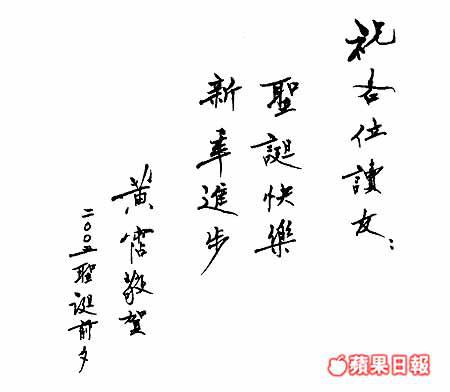 祝各位讀友：
聖誕快樂
新年進步
黃霑敬賀
二〇〇三聖誕前夕
蘋果日報